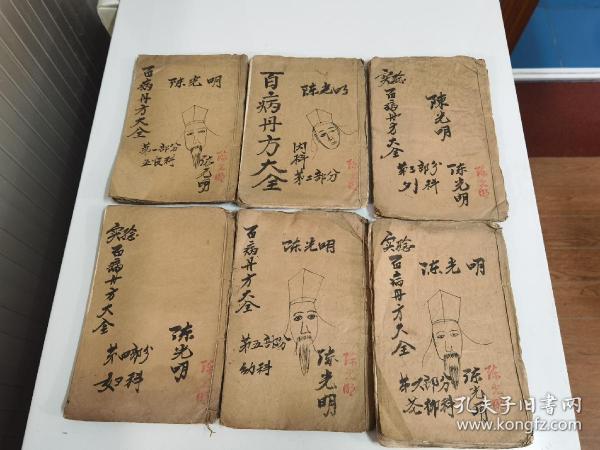 百病丹方大全
陈光明
第一部分
陈光明
百病丹方大全
陈光明
内科
第二部分
实验
百病丹方大全
陳光明
第三部分
外科
陈光明
实验
百病丹方大全
第四部分
妇科
陈光明
百病丹方大全
陈光明
第五部分
幼科
陈光明
实验
百病丹方大全
陈光明
第六部分
花柳科
陈光明
孔夫子旧书网
www.kongfz.com